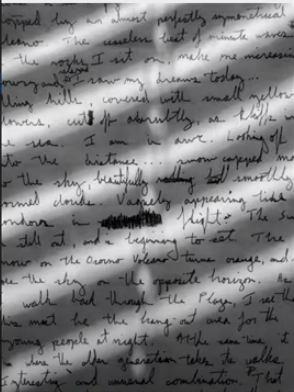 topped by an almost perfectly symmetrical
volcano. The ceaseless beat of minute waves
the rocks I sit on, make me increasin
and I saw my dreams today...
lling hills, covered with small yellow
lowers, cut off abruptly, as bluffs
the sea. I am in awe. Looking off
into the distance... snow capped mo
to the sky, beautifully smoothly
ormed clouds. Vaguely appearing like
condors in flight. The sun
is still out, and a beginning to set. The
snow on the Osorno Volcano turns orange, and
the sky on the opposite horizon. As
walk back through the Plaza, I see th
this must be the hang-out area for the
young people at night. At the same time it
is where the older generation takes its walks.
Interesting and unusual combination. That